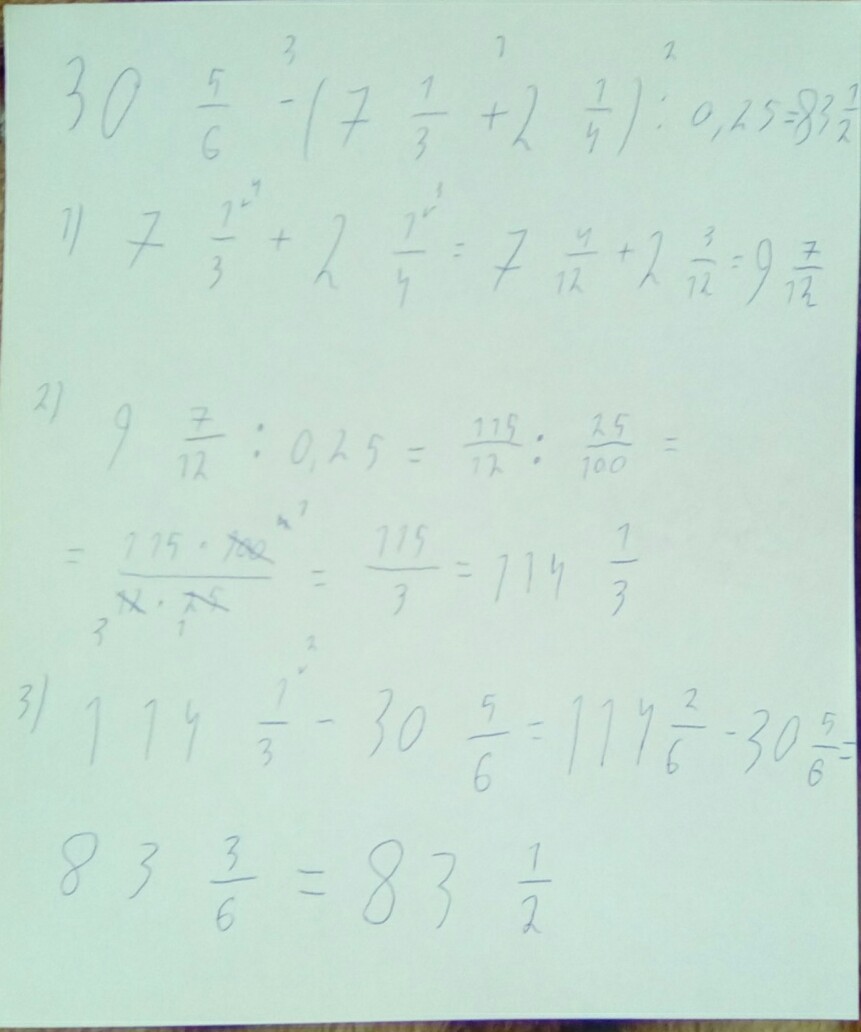 30 5/6 -³ (7 1/3 +¹ 2 1/4) :² 0,25 = 83 1/2
1) 7 1/3 ⁴ + 2 1/4 ³ = 7 4/12 + 2 3/12 = 9 7/12
2) 9 7/12 : 0,25 = 115/12 : 25/100 =
= 115 · 100 ⁴ ¹ / ₃ 12 · 25 ₁ = 115/3 = 114 1/3
3) 114 1/3 ² - 30 5/6 = 114 2/6 - 30 5/6 =
83 3/6 = 83 1/2